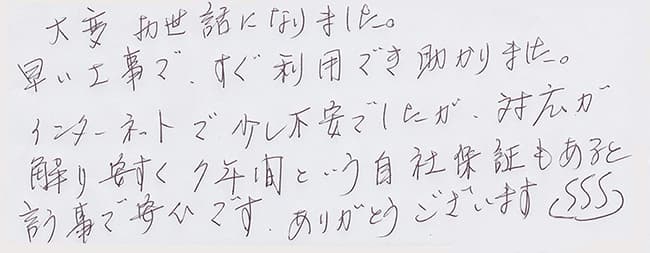 大変お世話になりました。
早い工事で、すぐ利用でき助かりました。
インターネットで少し不安でしたが、対応が
解り安すく7年間という自社保証もあると
言う事で安心です。ありがとうございます